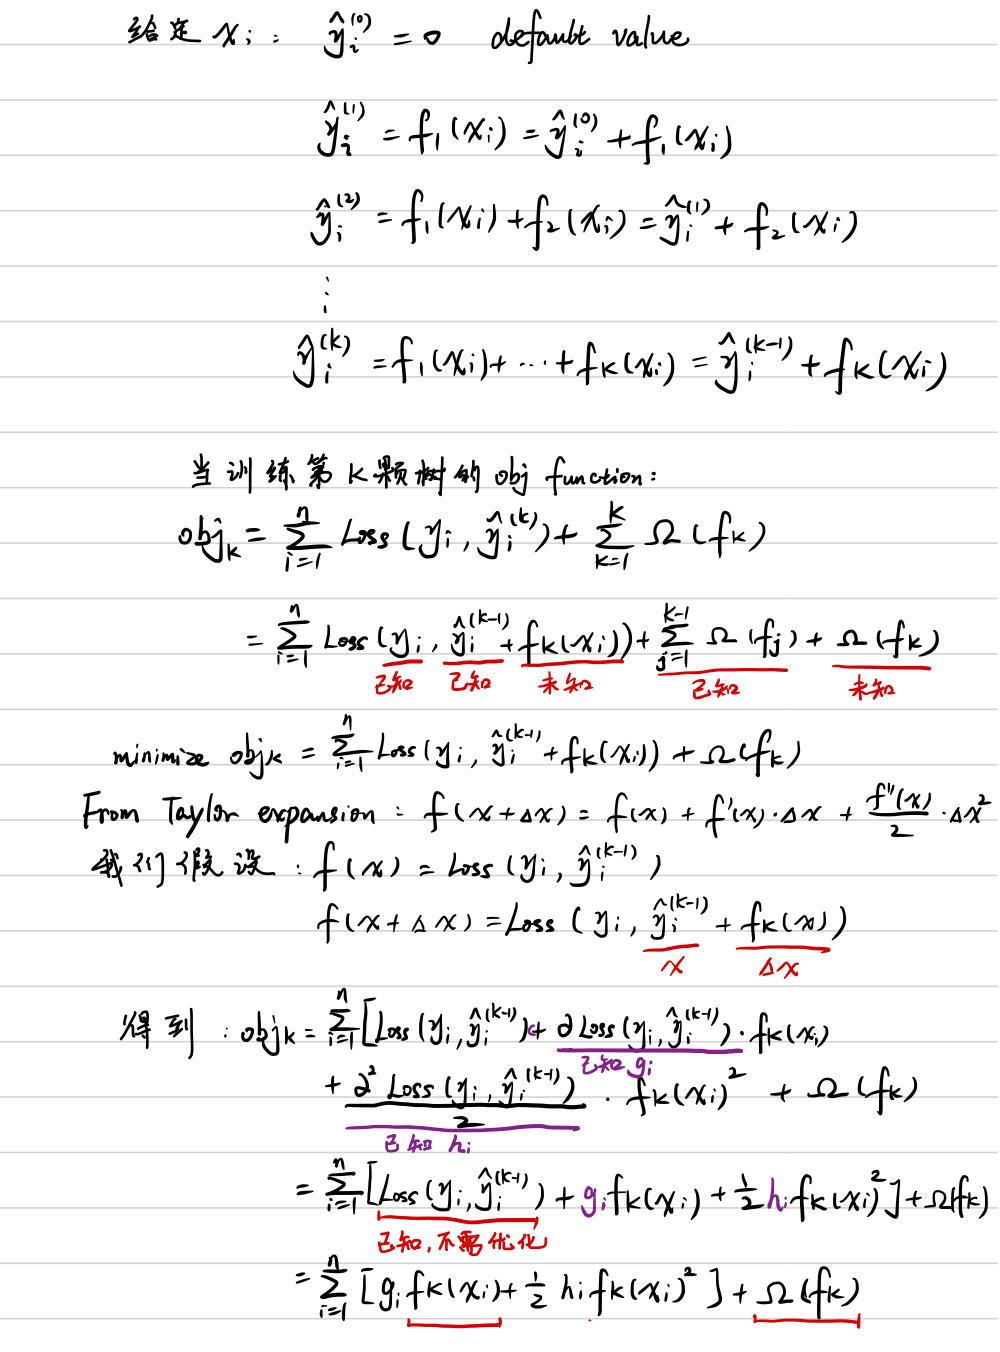 给定 xᵢ : ŷᵢ⁽⁰⁾ = 0 default value
ŷᵢ⁽¹⁾ = f₁(xᵢ) = ŷᵢ⁽⁰⁾ + f₁(xᵢ)
ŷᵢ⁽²⁾ = f₁(xᵢ) + f₂(xᵢ) = ŷᵢ⁽¹⁾ + f₂(xᵢ)
⋮
ŷᵢ⁽ᵏ⁾ = f₁(xᵢ) + ⋯ + fₖ(xᵢ) = ŷᵢ⁽ᵏ⁻¹⁾ + fₖ(xᵢ)
当训练第K颗树的 obj function:
objₖ = Σᵢ₌₁ⁿ Loss(yᵢ, ŷᵢ⁽ᵏ⁾) + Σₖ₌₁ᴷ Ω(fₖ)
= Σᵢ₌₁ⁿ Loss(yᵢ, ŷᵢ⁽ᵏ⁻¹⁾ + fₖ(xᵢ)) + Σⱼ₌₁ᴷ⁻¹ Ω(fⱼ) + Ω(fₖ)
已知 已知 未知 已知 未知
minimize objₖ = Σᵢ₌₁ⁿ Loss(yᵢ, ŷᵢ⁽ᵏ⁻¹⁾ + fₖ(xᵢ)) + Ω(fₖ)
From Taylor expansion : f(x+Δx) = f(x) + f'(x)·Δx + f''(x)/2 ·Δx²
我们假设 : f(x) = Loss(yᵢ, ŷᵢ⁽ᵏ⁻¹⁾)
f(x+Δx) = Loss(yᵢ, ŷᵢ⁽ᵏ⁻¹⁾ + fₖ(x))
x Δx
得到 : objₖ = Σᵢ₌₁ⁿ [Loss(yᵢ, ŷᵢ⁽ᵏ⁻¹⁾) + ∂Loss(yᵢ, ŷᵢ⁽ᵏ⁻¹⁾)·fₖ(xᵢ)
已知 gᵢ
+ ∂²Loss(yᵢ, ŷᵢ⁽ᵏ⁻¹⁾)/2 · fₖ(xᵢ)² + Ω(fₖ)
已知 hᵢ
= Σᵢ₌₁ⁿ [Loss(yᵢ, ŷᵢ⁽ᵏ⁻¹⁾) + gᵢfₖ(xᵢ) + ½hᵢfₖ(xᵢ)²] + Ω(fₖ)
已知,不需优化
= Σᵢ₌₁ⁿ [gᵢfₖ(xᵢ) + ½ hᵢfₖ(xᵢ)²] + Ω(fₖ)